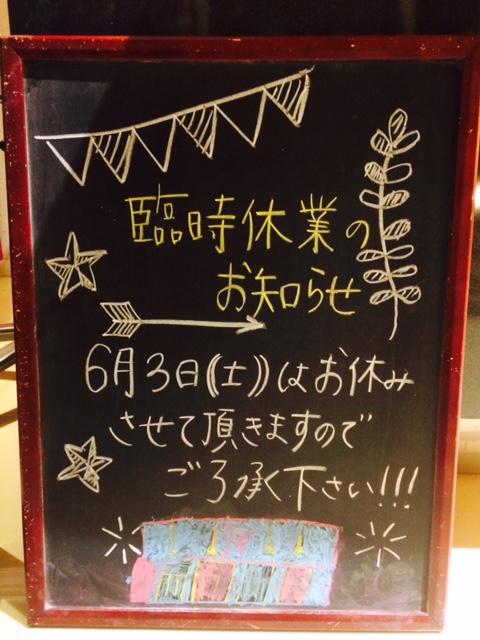 臨時休業の
お知らせ
6月3日((土))はお休み
させて頂きますので
ご了承下さい!!!